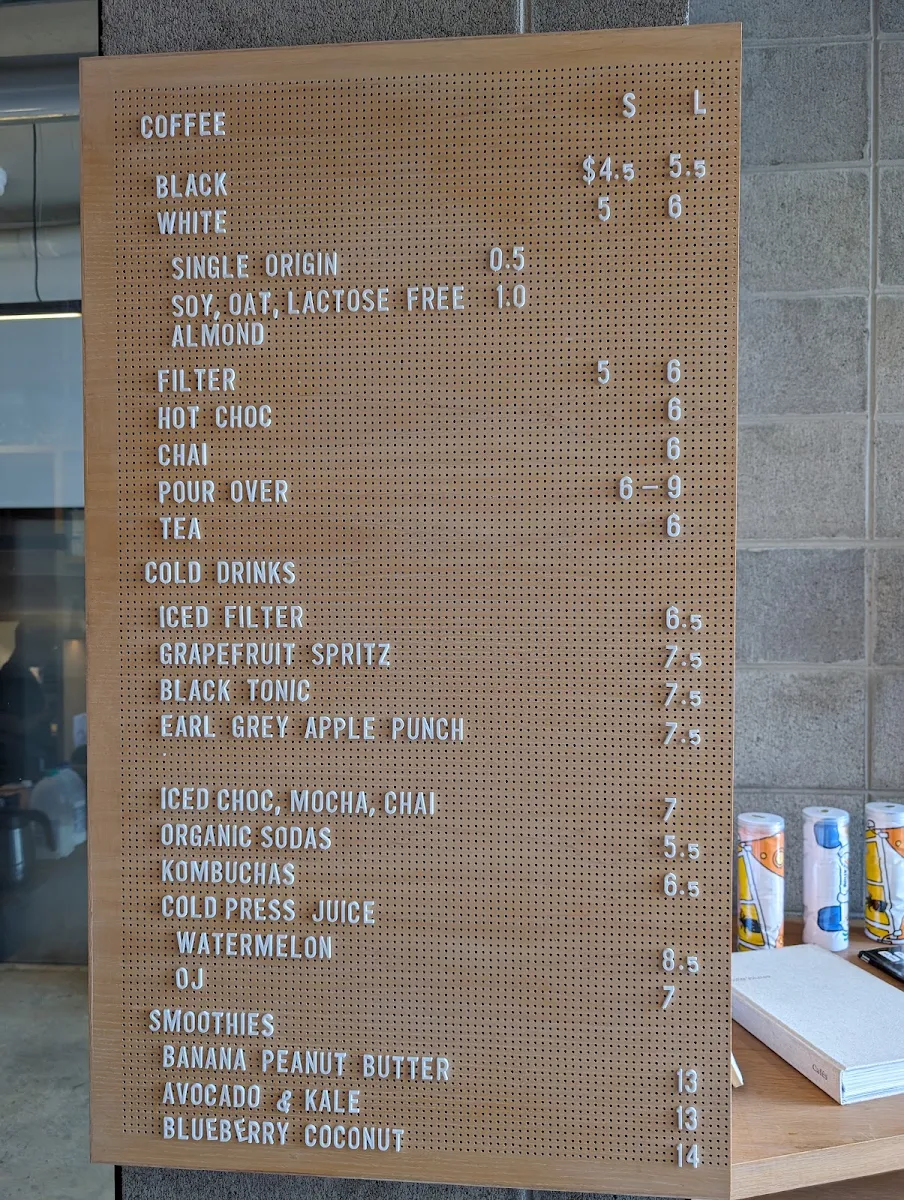 S L
COFFEE
BLACK $4.5 5.5
WHITE 5 6
SINGLE ORIGIN 0.5
SOY, OAT, LACTOSE FREE 1.0
ALMOND
FILTER 5 6
HOT CHOC 6
CHAI 6
POUR OVER 6-9
TEA 6
COLD DRINKS
ICED FILTER 6.5
GRAPEFRUIT SPRITZ 7.5
BLACK TONIC 7.5
EARL GREY APPLE PUNCH 7.5
ICED CHOC, MOCHA, CHAI 7
ORGANIC SODAS 5.5
KOMBUCHAS 6.5
COLD PRESS JUICE
WATERMELON 8.5
OJ 7
SMOOTHIES
BANANA PEANUT BUTTER 13
AVOCADO & KALE 13
BLUEBERRY COCONUT 14
Cafés